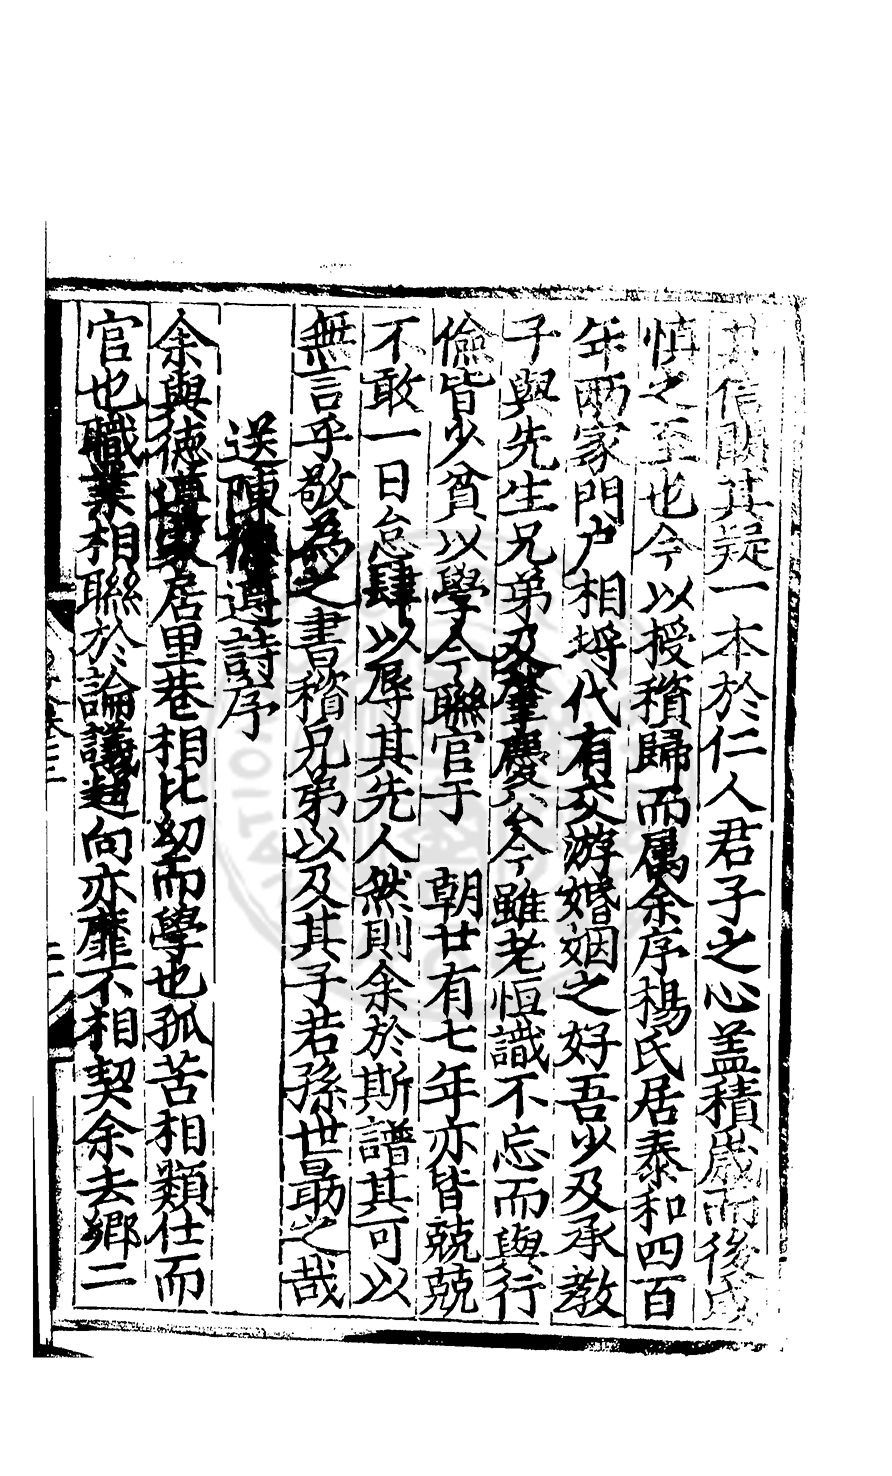 其信闕其疑一本於仁人君子之心盖積嵗而後成
慎之至也今以授穳歸而属余序楊氏居泰和四百
年兩家門户相埒代有交游婚姻之好吾少及承教
子與先生兄弟及肇慶公今雖老恒識不忘而與行
儉皆少貧以學今聯官于 朝廿有七年亦皆兢兢
不敢一日怠肆以辱其先人然則余於斯譜其可以
無言乎敬為之書穳兄弟以及其子若孫世最之哉
送陳遵詩序
余與徳遵家居里巷相比㓜而學也孤苦相類仕而
官也職業相聯於論議趨向亦靡不相契余去鄉二